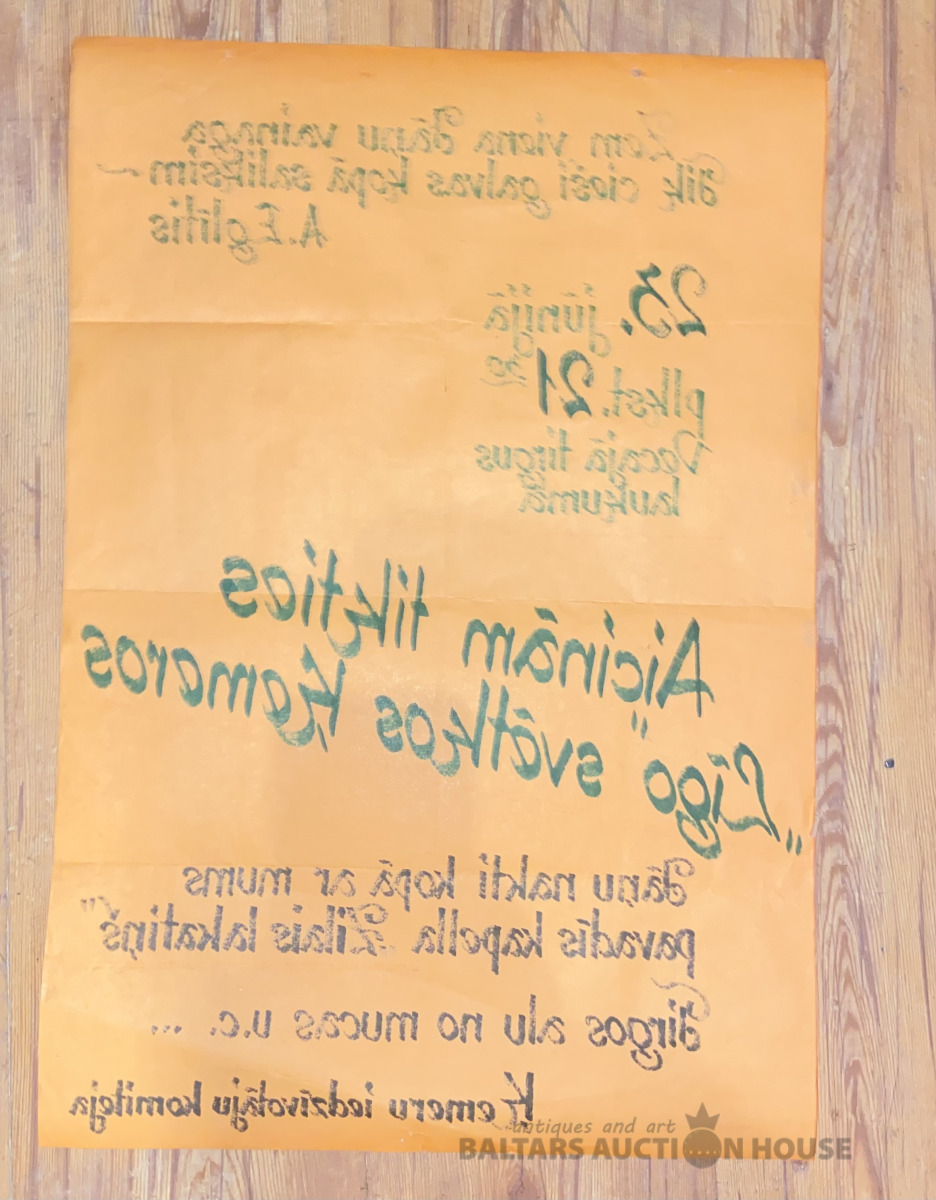 Zem viena Jāņu vainaga
Tik cieši galvas kopā saliksim ~
A. Eglītis
23. jūnijā
plkst. 21³⁰
Vecajā tirgus
laukumā
Aicinām tikties
"Līgo" svētkos Ķemeros
Jāņu nakti kopā ar mums
pavadīs kapella Zilais lakatiņš"
Tirgos alu no mucas u.c. ...
Ķemeru iedzīvotāju komiteja
antiques and art
BALTARS AUCTION HOUSE